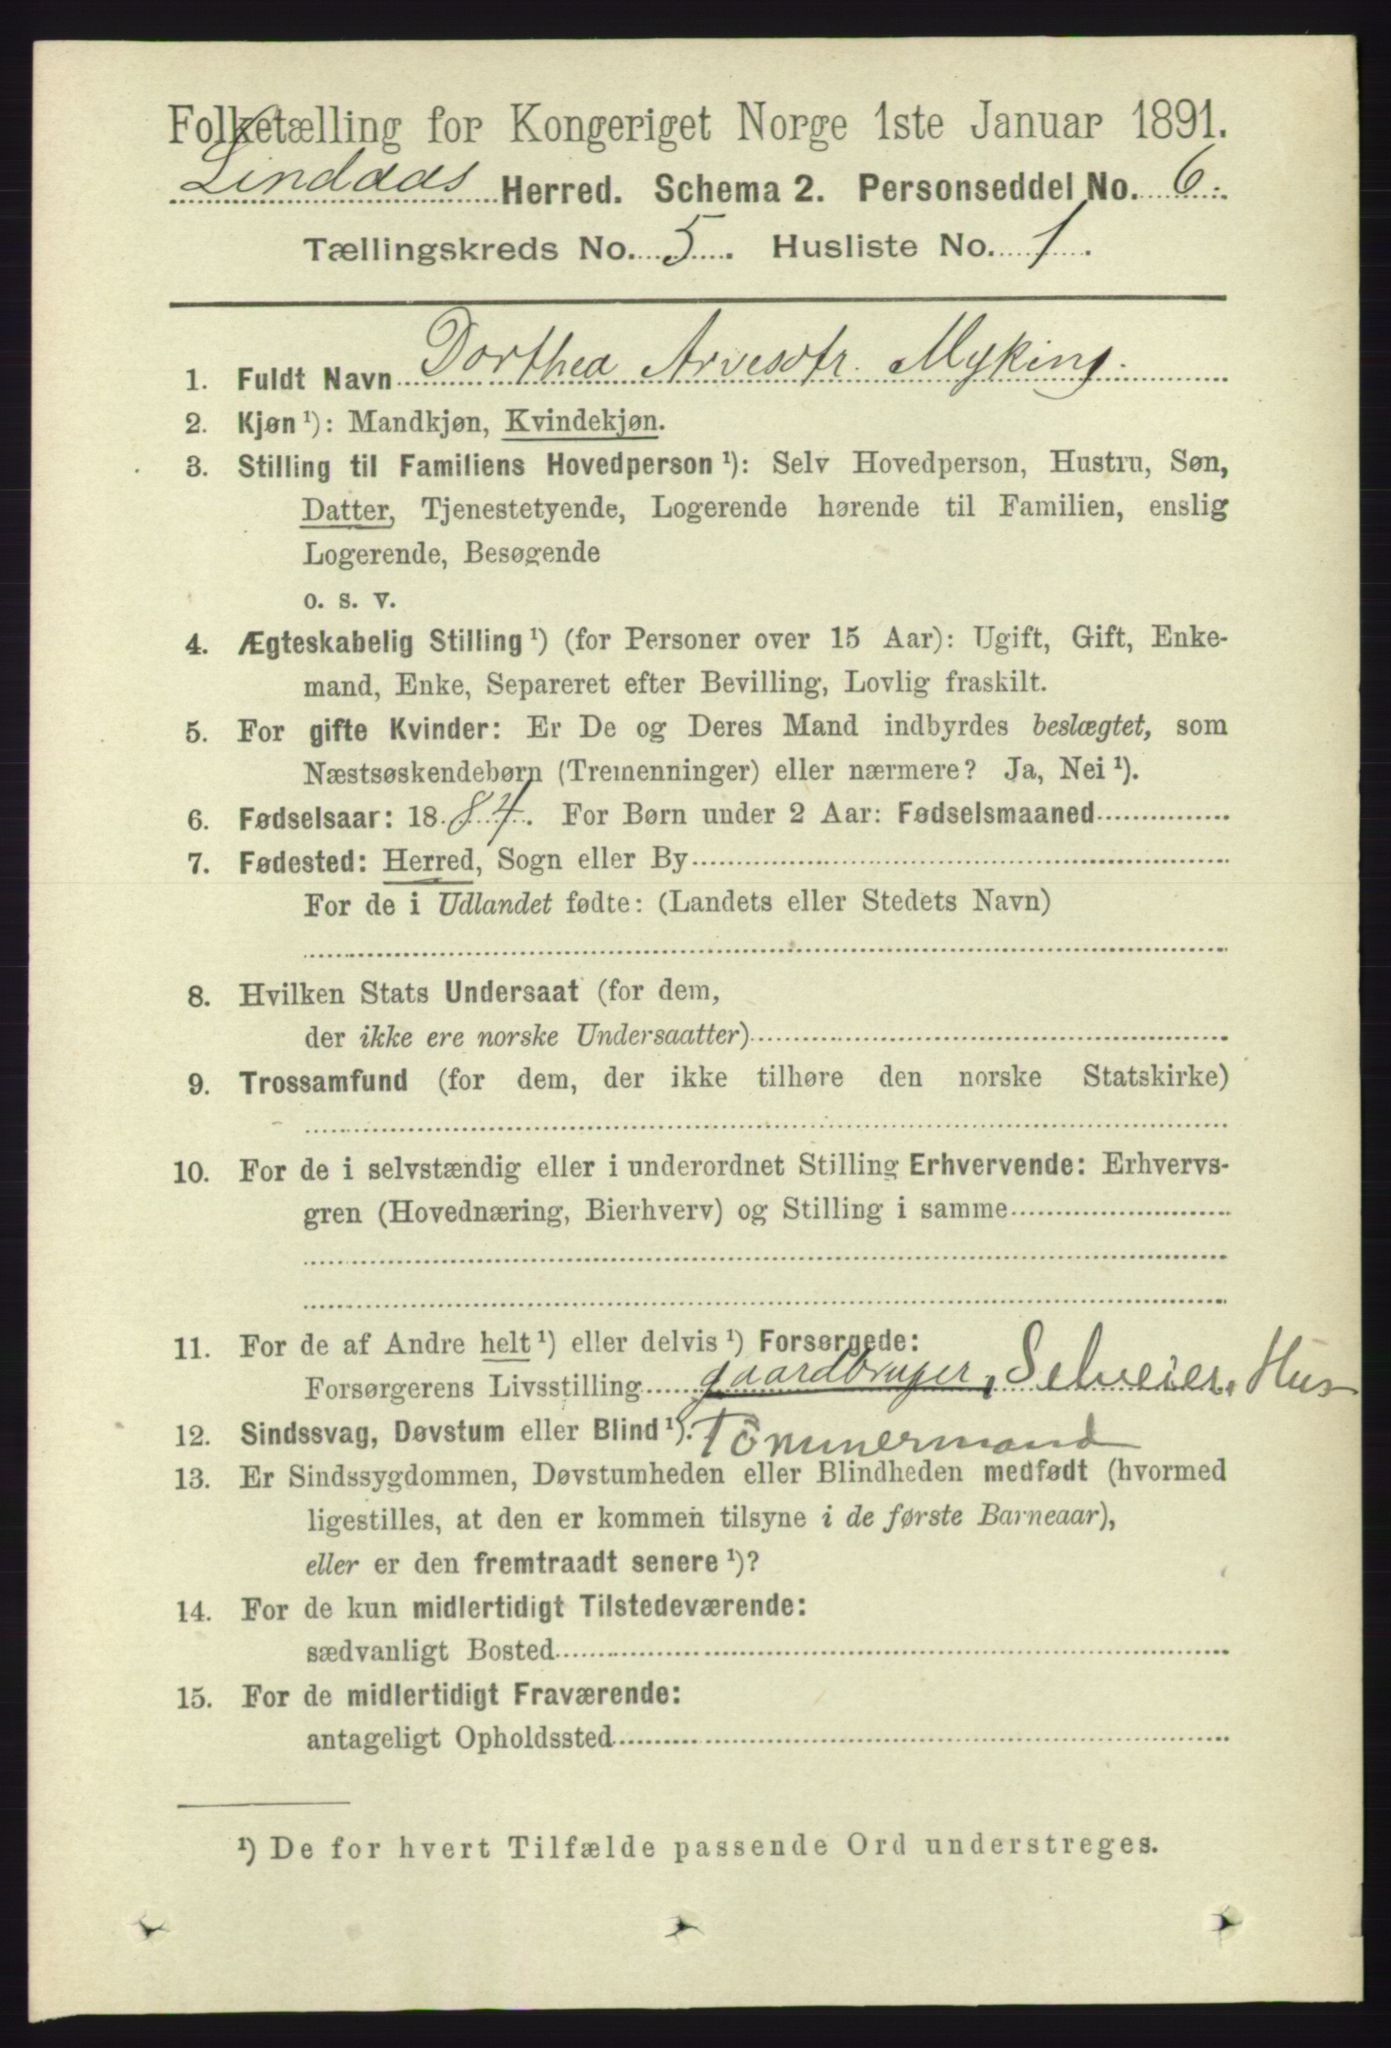 Folketælling for Kongeriget Norge 1ste Januar 1891.
Lindaas Herred. Schema 2. Personseddel No. 6.
Tællingskreds No. 5. Husliste No. 1.
1. Fuldt Navn Dorthea Arvesdtr. Myking.
2. Kjøn ¹): Mandkjøn, Kvindekjøn.
3. Stilling til Familiens Hovedperson ¹): Selv Hovedperson, Hustru, Søn,
Datter, Tjenestetyende, Logerende hørende til Familien, enslig
Logerende, Besøgende
o. s. v.
4. Ægteskabelig Stilling ¹) (for Personer over 15 Aar): Ugift, Gift, Enke-
mand, Enke, Separeret efter Bevilling, Lovlig fraskilt.
5. For gifte Kvinder: Er De og Deres Mand indbyrdes beslægtet, som
Næstsøskendebørn (Tremenninger) eller nærmere? Ja, Nei ¹).
6. Fødselsaar: 1884. For Børn under 2 Aar: Fødselsmaaned
7. Fødested: Herred, Sogn eller By
For de i Udlandet fødte: (Landets eller Stedets Navn)
8. Hvilken Stats Undersaat (for dem,
der ikke ere norske Undersaatter)
9. Trossamfund (for dem, der ikke tilhøre den norske Statskirke)
10. For de i selvstændig eller i underordnet Stilling Erhvervende: Erhvervs-
gren (Hovednæring, Bierhverv) og Stilling i samme
11. For de af Andre helt ¹) eller delvis ¹) Forsørgede:
Forsørgerens Livsstilling gaardbruger, Selveier, Hus
12. Sindssvag, Døvstum eller Blind ¹). Tömmermand
13. Er Sindssygdommen, Døvstumheden eller Blindheden medfødt (hvormed
ligestilles, at den er kommen tilsyne i de første Barneaar),
eller er den fremtraadt senere ¹)?
14. For de kun midlertidigt Tilstedeværende:
sædvanligt Bosted
15. For de midlertidigt Fraværende:
antageligt Opholdssted
¹) De for hvert Tilfælde passende Ord understreges.